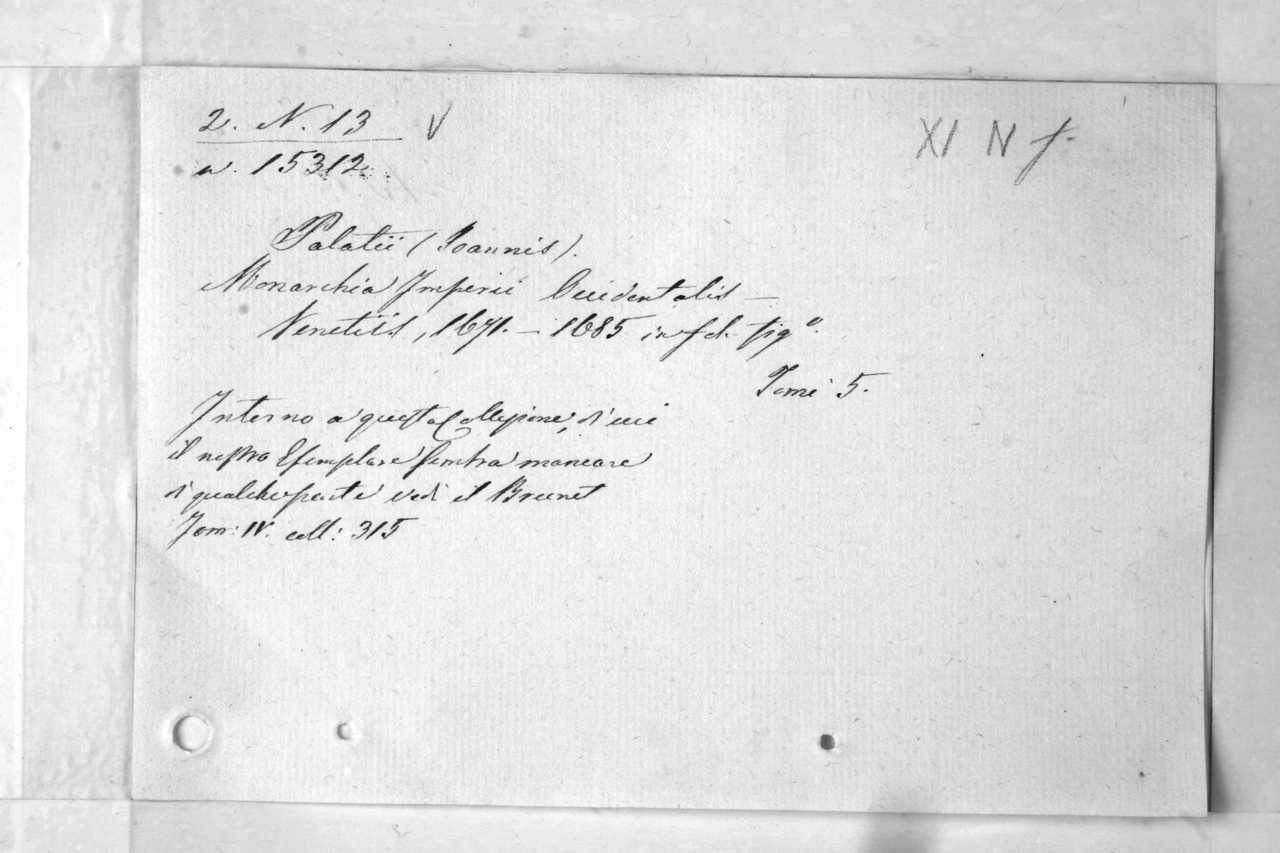 2. N. 13 V
n. 15312.
XI N f.
Palatii (Joannis).
Monarchia Imperii Occidentalis —
Venetiis, 1671. — 1685 in fol. fig.º
Tomi 5.
Intorno a questa Collezione, di cui
il nostro Esemplare sembra mancare
di qualche parte vedi il Brunet
Tom: IV. coll: 315